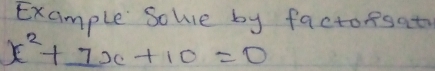 Example Solve by factorsat
x² + 7x + 10 = 0